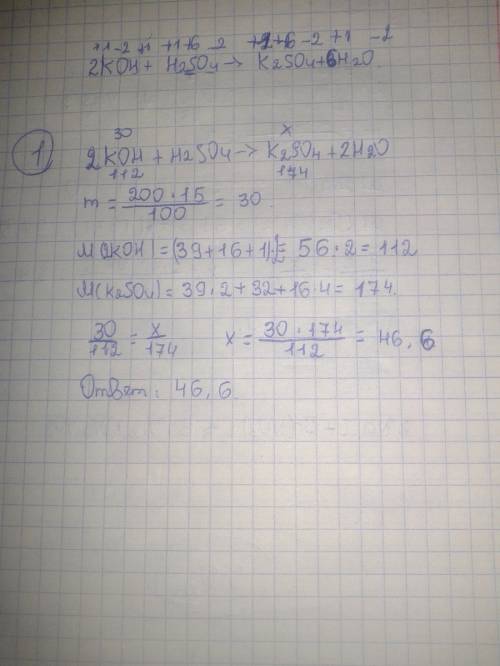 +1 -2 +1 +1 +6 -2 +1 +6 -2 +1 -2
2KOH + H2SO4 → K2SO4 + 6H2O
30 x
1 2KOH + H2SO4 → K2SO4 + 2H2O
112 174
m = 200 · 15 / 100 = 30
M(KOH) = (39+16+1) = 56 · 2 = 112
M(K2SO4) = 39 · 2 + 32 + 16 · 4 = 174.
30/112 = x/174 x = 30 · 174 / 112 = 46,6
Ответ: 46,6.